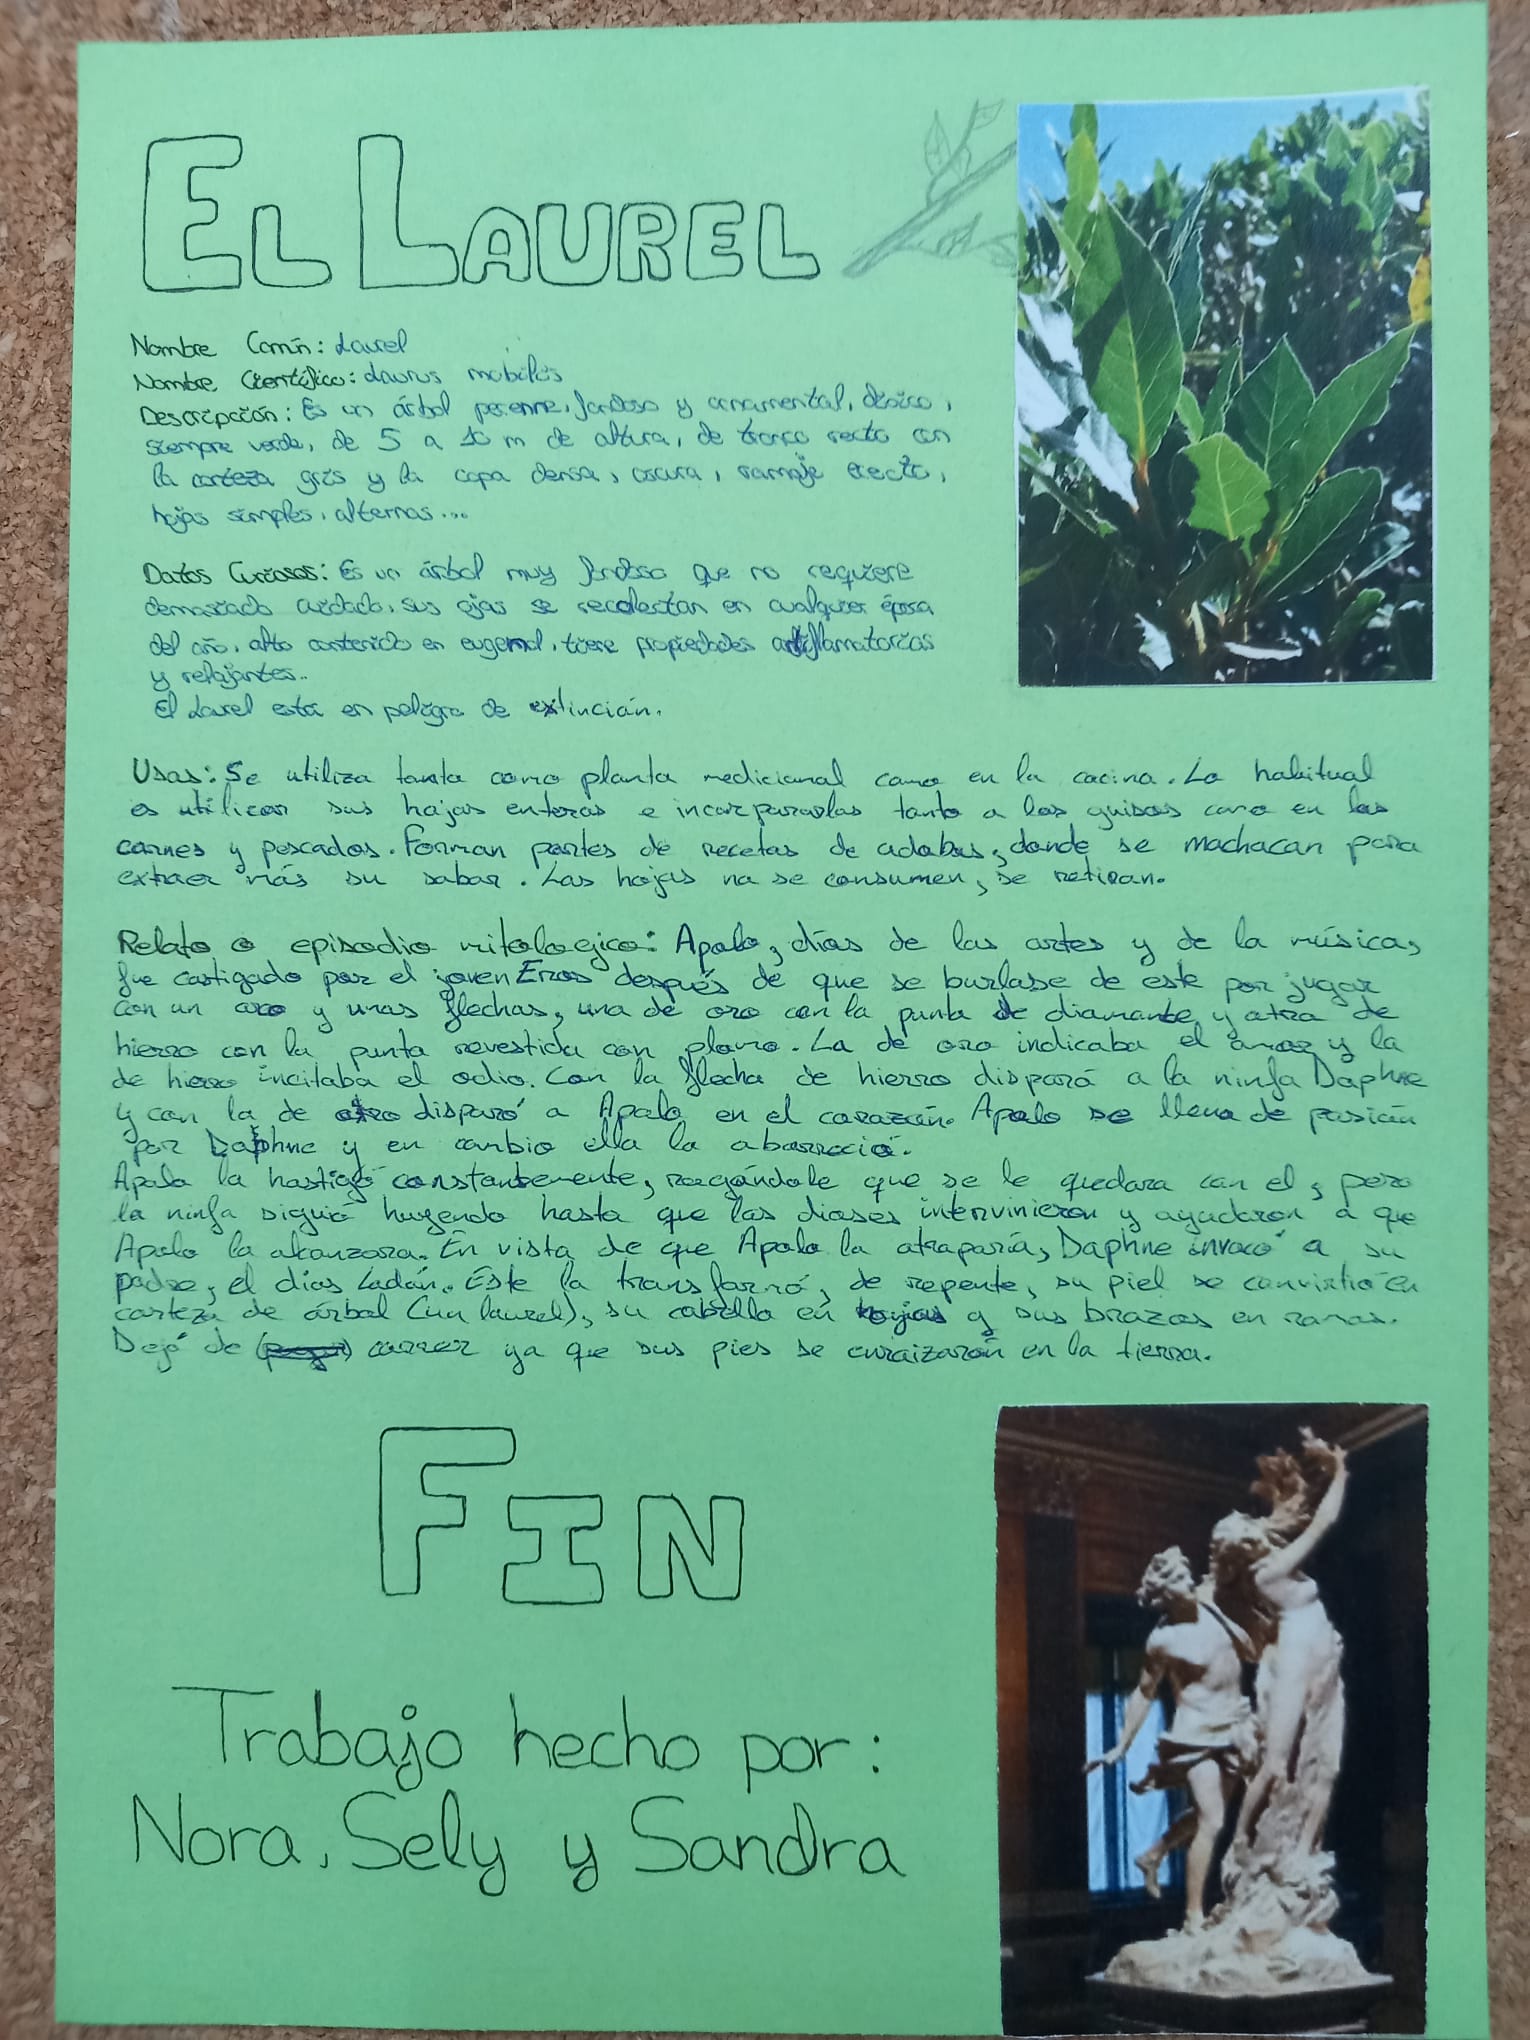 EL LAUREL
Nombre Común: Laurel
Nombre Científico: Laurus nobilis
Descripción: Es un árbol perenne, fondoso y ornamental, dioico,
siempre verde, de 5 a 10 m de altura, de tronco recto con
la corteza gris y la copa densa, oscura, ramaje erecto,
hojas simples, alternas...
Datos Curiosos: Es un árbol muy fondoso que no requiere
demasiado cuidado, sus ojas se recolectan en cualquier época
del año, alto contenido en eugenol, tiene propiedades antiflamatorias
y relajantes..
El Laurel está en peligro de extinción.
Usos: Se utiliza tanto como planta medicional como en la cocina. Lo habitual
es utilizar sus hojas enteras e incorporarlas tanto a los guisos como en las
carnes y pescados. Forman partes de recetas de adobos, donde se machacan para
extraer más su sabor. Las hojas no se consumen, se retiran.
Relato o episodio mitologico: Apolo, dios de las artes y de la música,
fue castigado por el joven Eros después de que se burlase de este por jugar
con un arco y unas flechas, una de oro con la punta de diamante y otra de
hierro con la punta revestida con plomo. La de oro indicaba el amor y la
de hierro incitaba el odio. Con la flecha de hierro disparó a la ninfa Daphne
y con la de otro disparó a Apolo en el corazón. Apolo se lleno de pasión
por Daphne y en cambio ella la aborreció.
Apolo la hostigó constantemente, rogándole que se le quedara con el, pero
la ninfa siguió huyendo hasta que los dioses intervinieron y ayudaron a que
Apolo la alcanzara. En vista de que Apolo la atraparía, Daphne invocó a su
padre, el dios Ladón. Éste la transformó, de repente, su piel se convirtió en
corteza de árbol (un laurel), su cabello en hojas y sus brazos en ramas.
Dejó de correr ya que sus pies se enraizarón en la tierra.
FIN
Trabajo hecho por:
Nora, Sely y Sandra